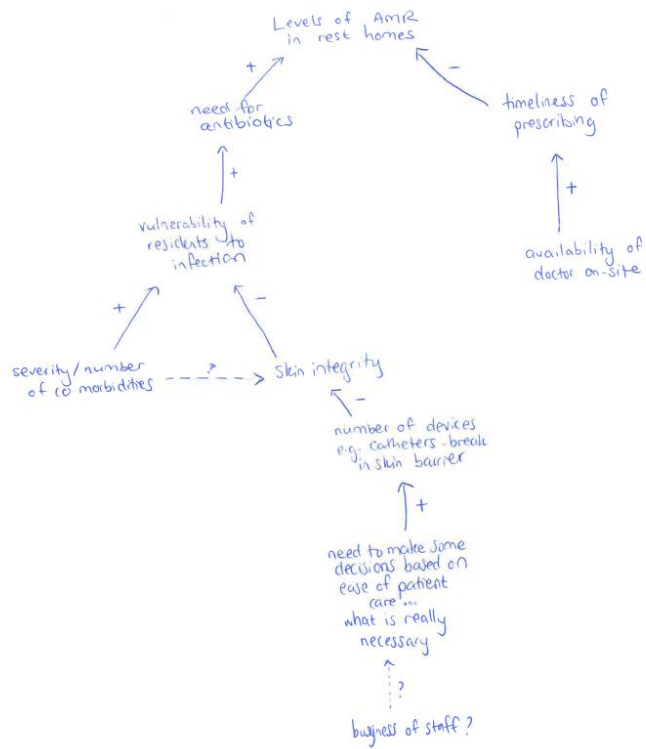 Levels of AMR
in rest homes
+
-
need for
antibiotics
timeliness of
prescribing
+
+
vulnerability of
residents to
infection
availability of
doctor on-site
+
-
severity/number
of co morbidities
?
skin integrity
-
number of devices
e.g. catheters - break
in skin barrier
+
need to make some
decisions based on
ease of patient
care ...
what is really
necessary
?
busyness of staff?